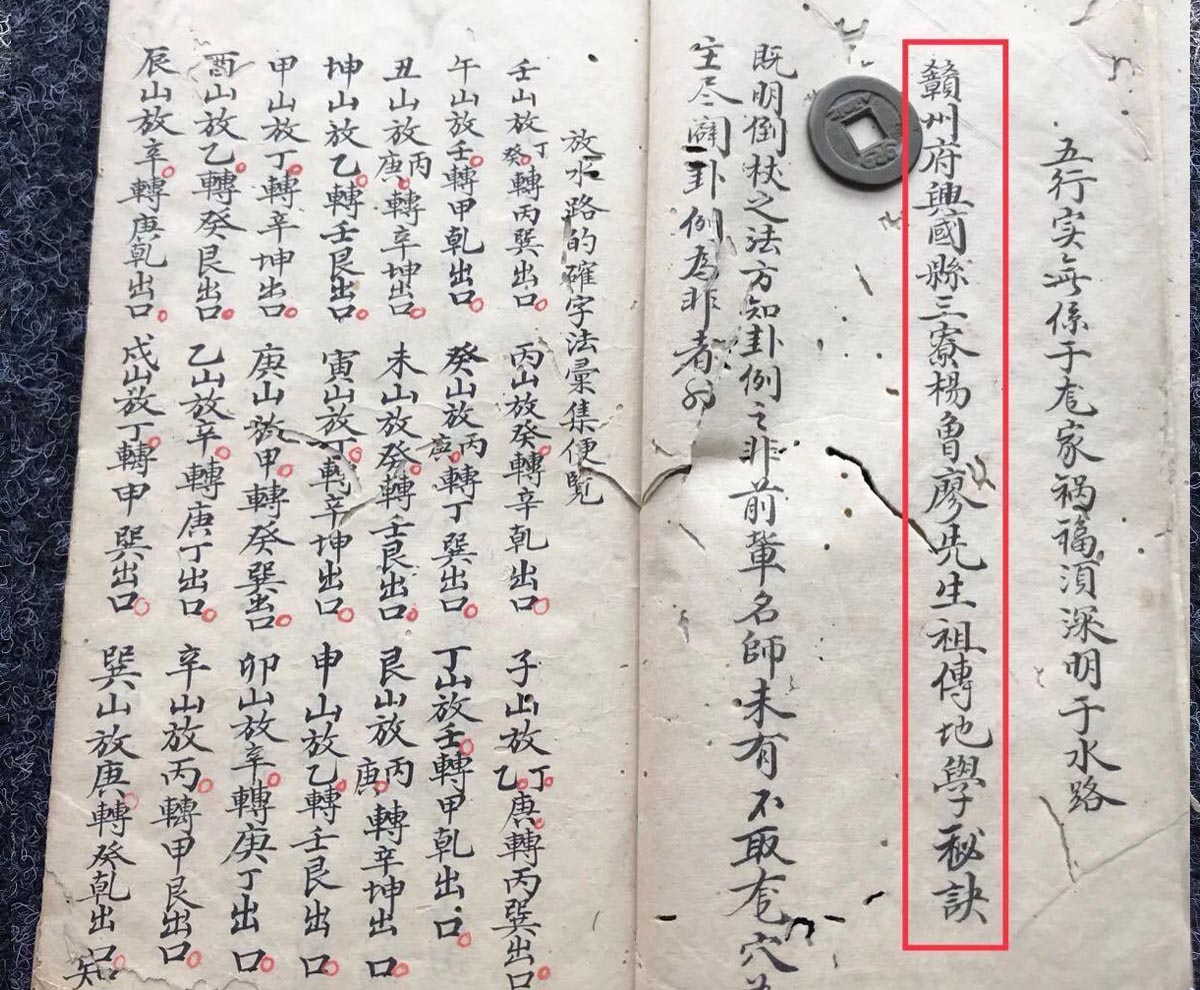 五行实無係于㡯家祸福湏深明于水路
贛州府興國縣三寮楊曾廖先生祖傳地學秘訣
既明倒杖之法方知卦例之非前輩名師未有不取㡯穴
主尽闢卦例為非者也
放水路的確字法彙集便覧
壬山放丁癸轉丙巽出口 丙山放癸轉辛乾出口 子山放丁乙庚轉丙巽出口
午山放壬轉甲乾出口 癸山放丙庚轉丁巽出口 丁山放壬轉甲乾出口
丑山放丙庚轉辛坤出口 未山放癸轉壬艮出口 艮山放丙庚轉辛坤出口
坤山放乙轉壬艮出口 寅山放丁轉辛坤出口 申山放乙轉壬艮出口
甲山放丁轉辛坤出口 庚山放甲轉癸巽出口 卯山放辛轉庚丁出口
酉山放乙轉癸艮出口 乙山放辛轉庚丁出口 辛山放丙轉甲艮出口
辰山放辛轉庚乾出口 戌山放丁轉申巽出口 巽山放庚轉癸乾出口 知